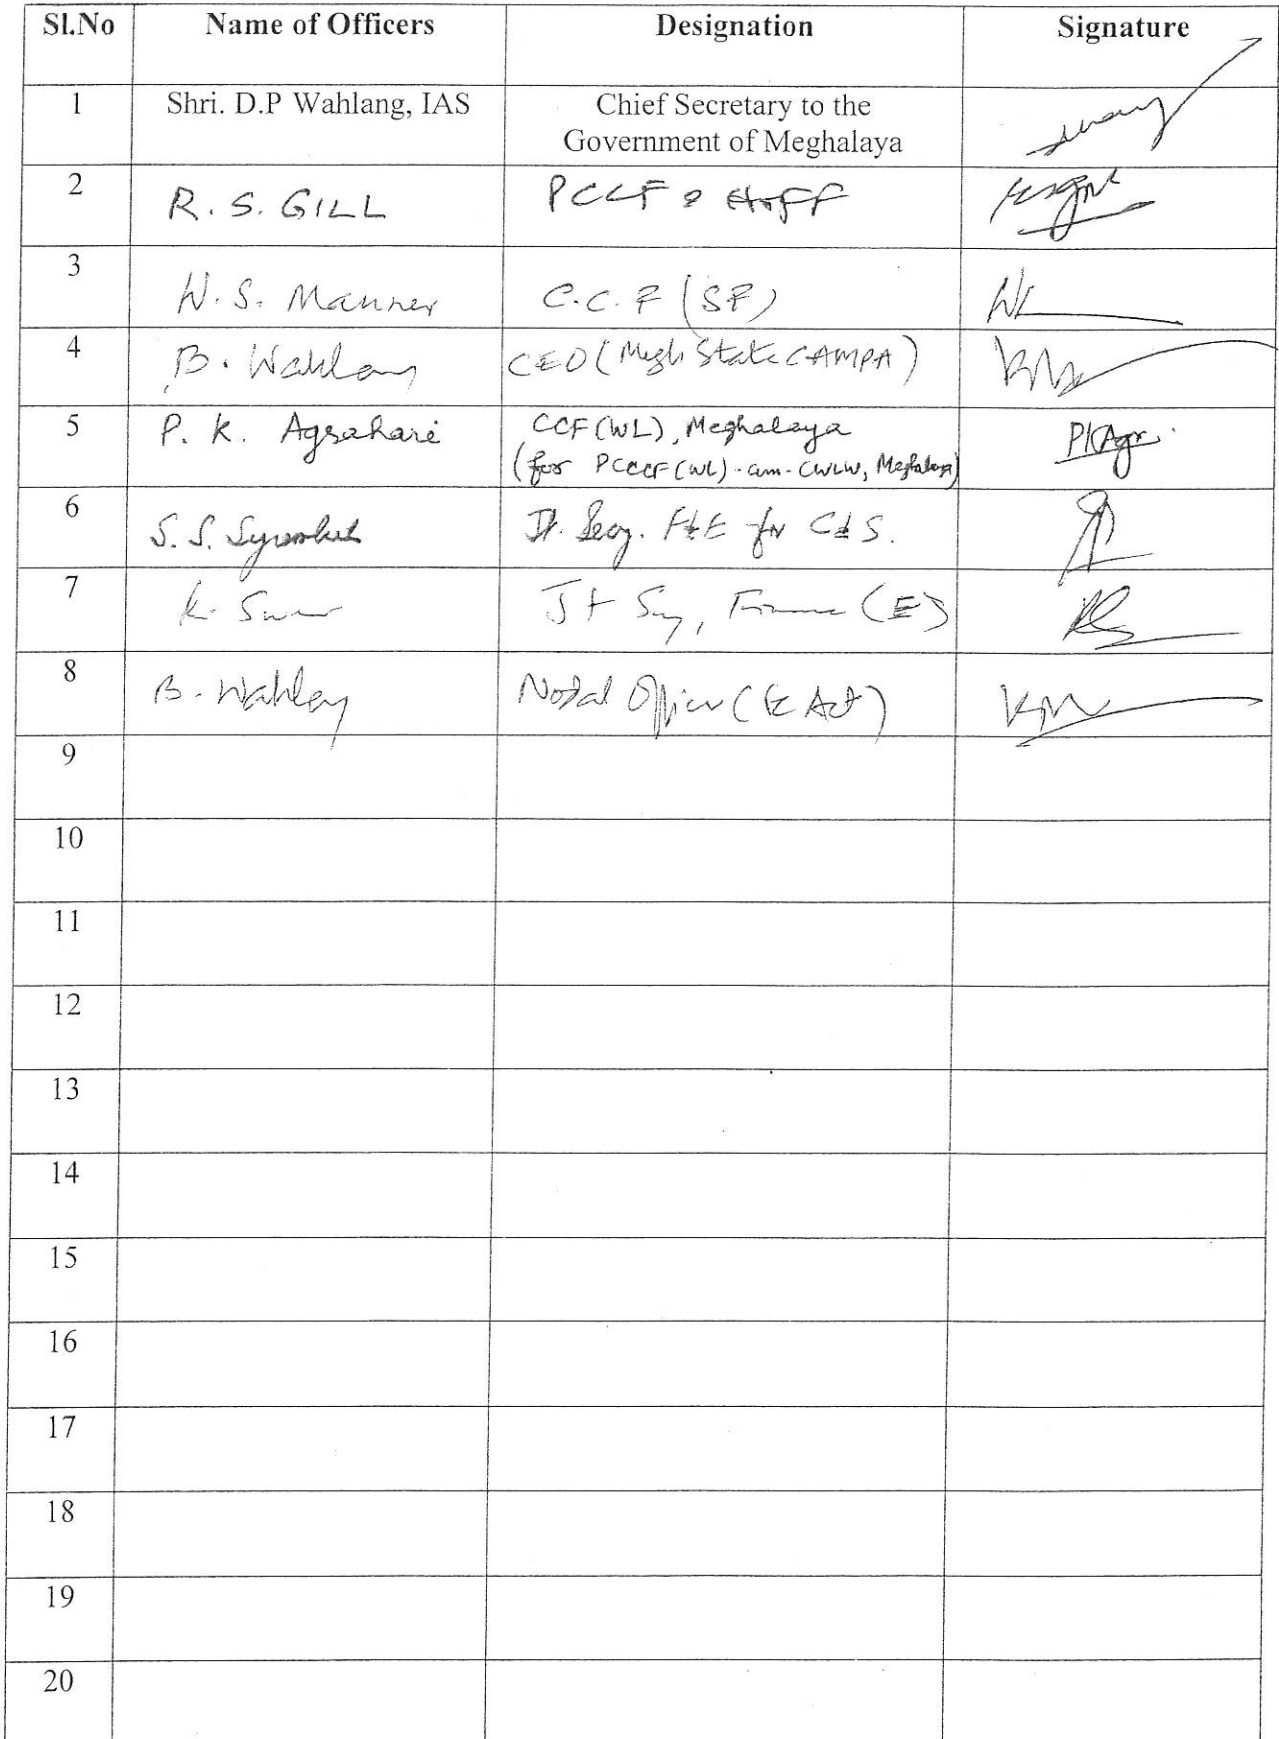 Sl.No Name of Officers Designation Signature
1 Shri. D.P Wahlang, IAS Chief Secretary to the
Government of Meghalaya
2 R. S. GILL PCCF & HoFF
3 H. S. Manner C.C.F (SF)
4 B. Wahlang CEO (Megh State CAMPA)
5 P. K. Agrahari CCF (WL), Meghalaya
(for PCCF (WL) -cum- CWLW, Meghalaya)
6 S. S. Jt. Secy. F&E for C&S.
7 K. Jt Secy, Finance (E)
8 B. Wahlang Nodal Officer (FC Act)
9
10
11
12
13
14
15
16
17
18
19
20